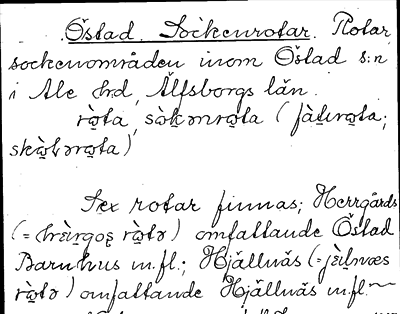 Östad. Sockenrotar. Rotar,
sockenområden inom Östad s:n
i Ale hd, Älfsborgs län.
rò̤ta, sò̤kənro̤ta (fàt̤iro̤ta;
Sex rotar finnas; Herrgårds
rò̤tə) omfattande Östad
Barnhus m.fl.; Hjällnäs
rò̤tə) omfattande Hjällnäs m.fl.